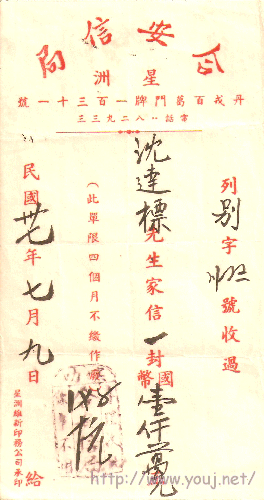 安信局
星洲
丹戎百葛門牌一百三十一號
電話：八二九三三
列別字號收過
沈達標先生家信一封國幣壹仟萬元
(此單限四個月不繳作廢)
民國卅七年七月九日給
星洲維新印務公司承印
http://www.youj.net/